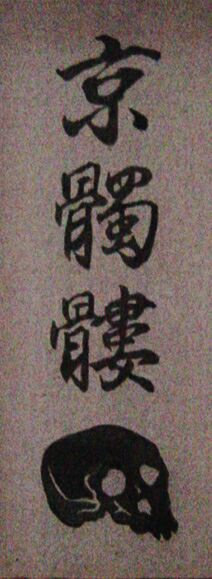 京髑髏